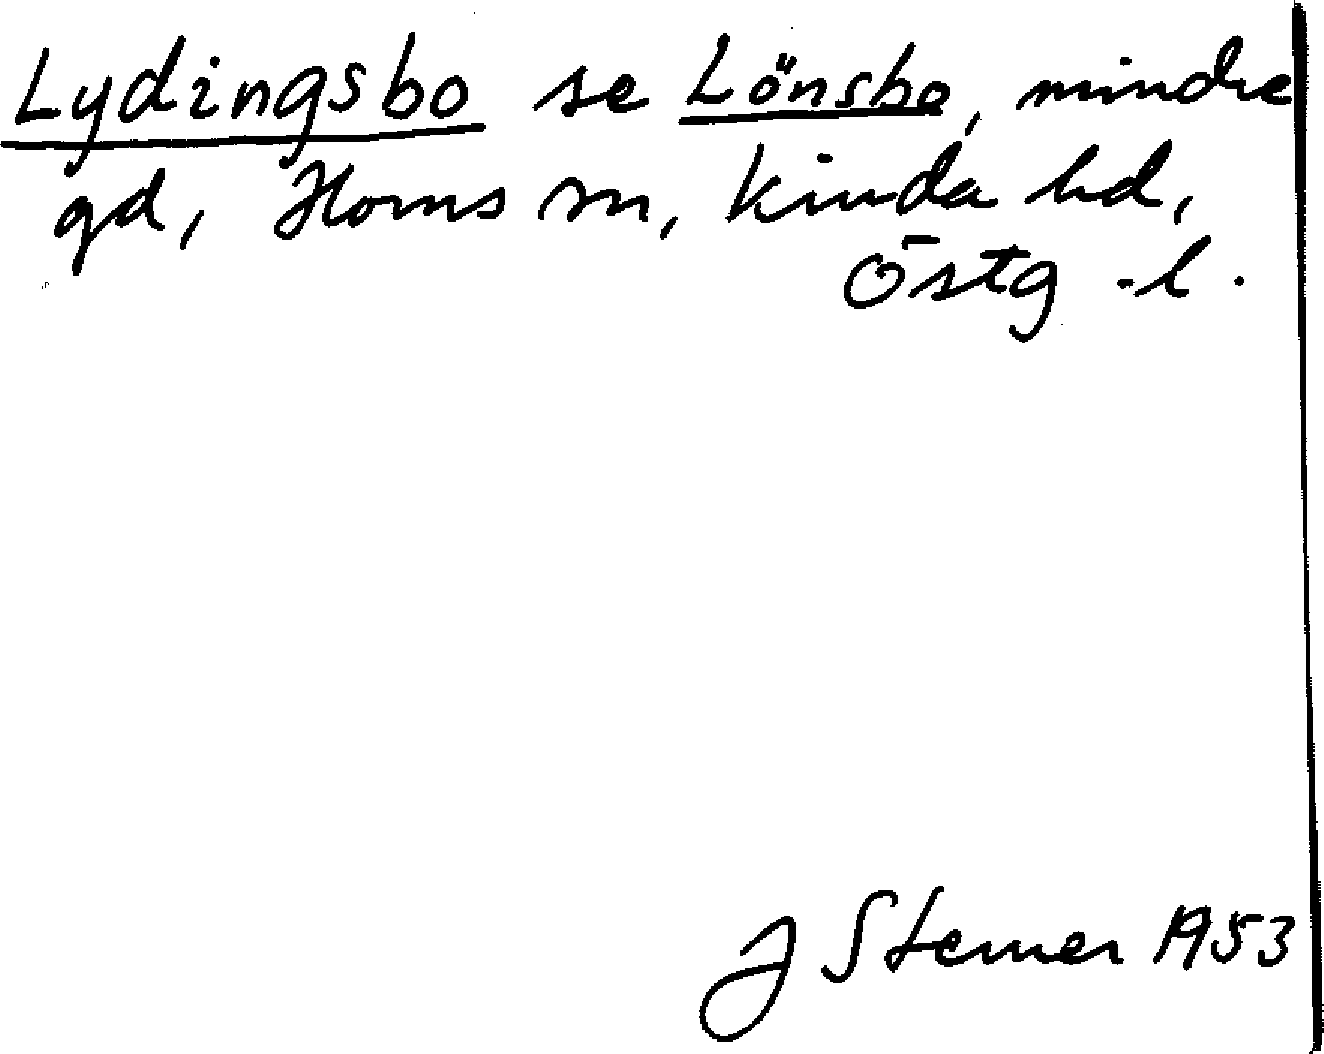 Lydingsbo se Lönsbo, mindre
gd, Horns sn, Kinda hd,
Östg -l.
J Sterner 1953